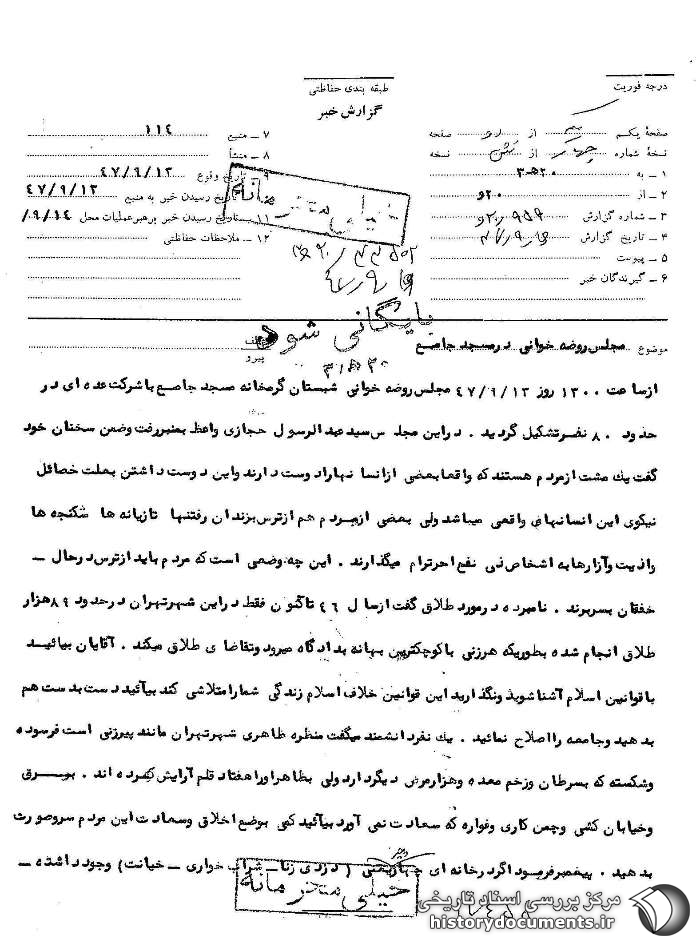 درجه فوریت
طبقه بندی حفاظتی
گزارش خبر
صفحهٔ یکم از دو صفحه
نسخهٔ شماره چهار از شش نسخه
۱ ـ به ۲۰ه۳
۲ ـ از ۲۰و
۳ ـ شمارهٔ گزارش
۴ ـ تاریخ گزارش
۵ ـ پیوست
۶ ـ گیرندگان خبر
۷ ـ منبع ۱۱۴
۸ ـ منشأ
۹ ـ تاریخ وقوع ۴۷/۹/۱۳
تاریخ رسیدن خبر به منبع ۴۷/۹/۱۳
۱۱ ـ تاریخ رسیدن خبر برهبرعملیات محل /۹/۱۴
۱۲ ـ ملاحظات حفاظتی
خیلی محرمانه
بایگانی شود
موضوع مجلس روضه خوانی درمسجد جامع
پیرو
ازساعت ۱۳۰۰ روز ۴۷/۹/۱۳ مجلس روضه خوانی شبستان گرمخانه مسجد جامع با شرکت عده ای در
حدود ۸۰ نفرتشکیل گردید . در این مجلس سید عبدالرسول حجازی واعظ بمنبررفت وضمن سخنان خود
گفت یک مشت ازمردم هستند که واقعا بعضی ازانسانهارادوست دارند واین دوست داشتن بعلت خصائل
نیکوی این انسانهای واقعی میباشد ولی بعضی ازمردم هم ازترس بزندان رفتنها تازیانه ها شکنجه ها
واذیت وآزارهابه اشخاص ذی نفع احرترام میگذارند . این چه وضعی است که مردم باید ازترس درحال ـ
خفقان بسربرند . نامبرده درمورد طلاق گفت ازسال ۴۶ تاکنون فقط دراین شهرتهران درحدود ۸۹هزار
طلاق انجام شده بطوریکه هرزنی باکوچکترین بهانه بدادگاه میرود وتقاضای طلاق میکند . آقایان بیائید
باقوانین اسلام آشناشوید ونگذارید این قوانین خلاف اسلام زندگی شمارامتلاشی کند بیائید دست بدست هم
بدهید وجامعه رااصلاح نمائید . یک نفردانشمند میگفت منظره ظاهری شهرتهران مانند پیرزنی است فرسوده
وشکسته که بسرطان وزخم معده وهزارمرض دیگردارد ولی بظاهراوراهفتاد قلم آرایش کرده اند . برق
وخیابان کشی وچمن کاری وفواره که سعادت نمی آورد بیائید کمی بوضع اخلاق وسعادت این مردم سروصورت
بدهید . پیغمبرفرمود اگردرخانه ای چهارچیز ( دزدی زنا ـ شراب خواری ـ خیانت) وجود داشته ـ
خیلی محرمانه
مرکز بررسی اسناد تاریخی
historydocuments.ir